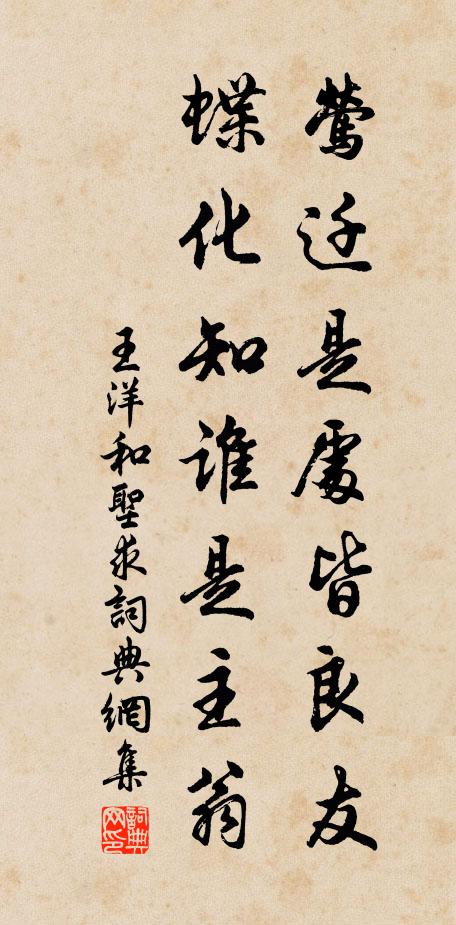 鶯迁是處皆良友
蝶化知誰是主翁
王洋和聖求詞典網集
詞典网印